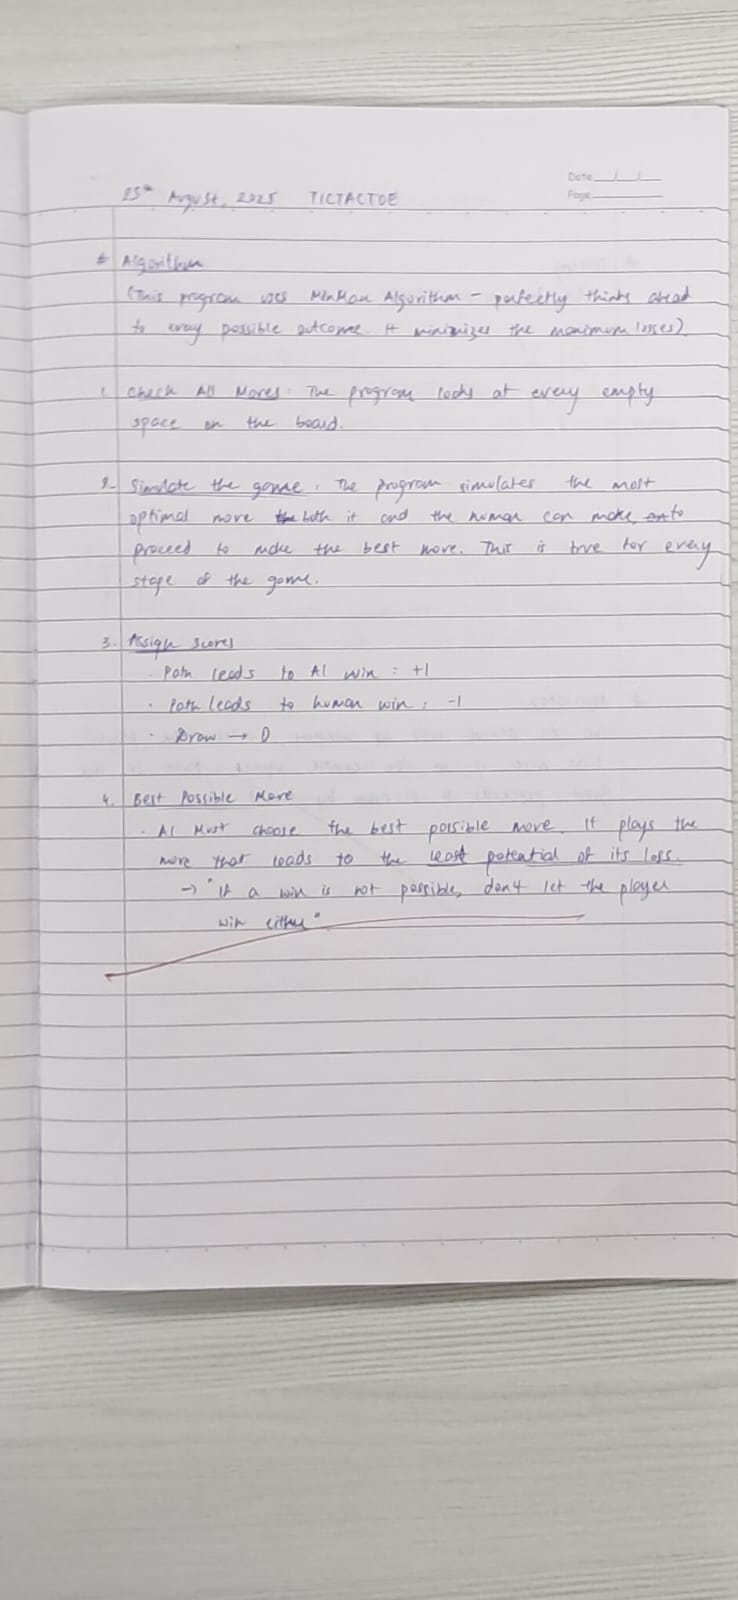 25th August, 2025 TICTACTOE
Date
Page
# Algorithm
(This program uses MinMax Algorithm - perfectly thinks ahead
to every possible outcome. It minimizes the maximum losses)
1. Check All Moves: The program looks at every empty
space on the board.
2. Simulate the game: The program simulates the most
optimal move both it and the human can make, to
proceed to make the best move. This is true for every
stage of the game.
3. Assign Scores
· Path leads to AI win : +1
· Path leads to human win : -1
· Draw → 0
4. Best Possible Move
· AI Must choose the best possible move. It plays the
move that leads to the least potential of its loss.
→ "If a win is not possible, don't let the player
win either"